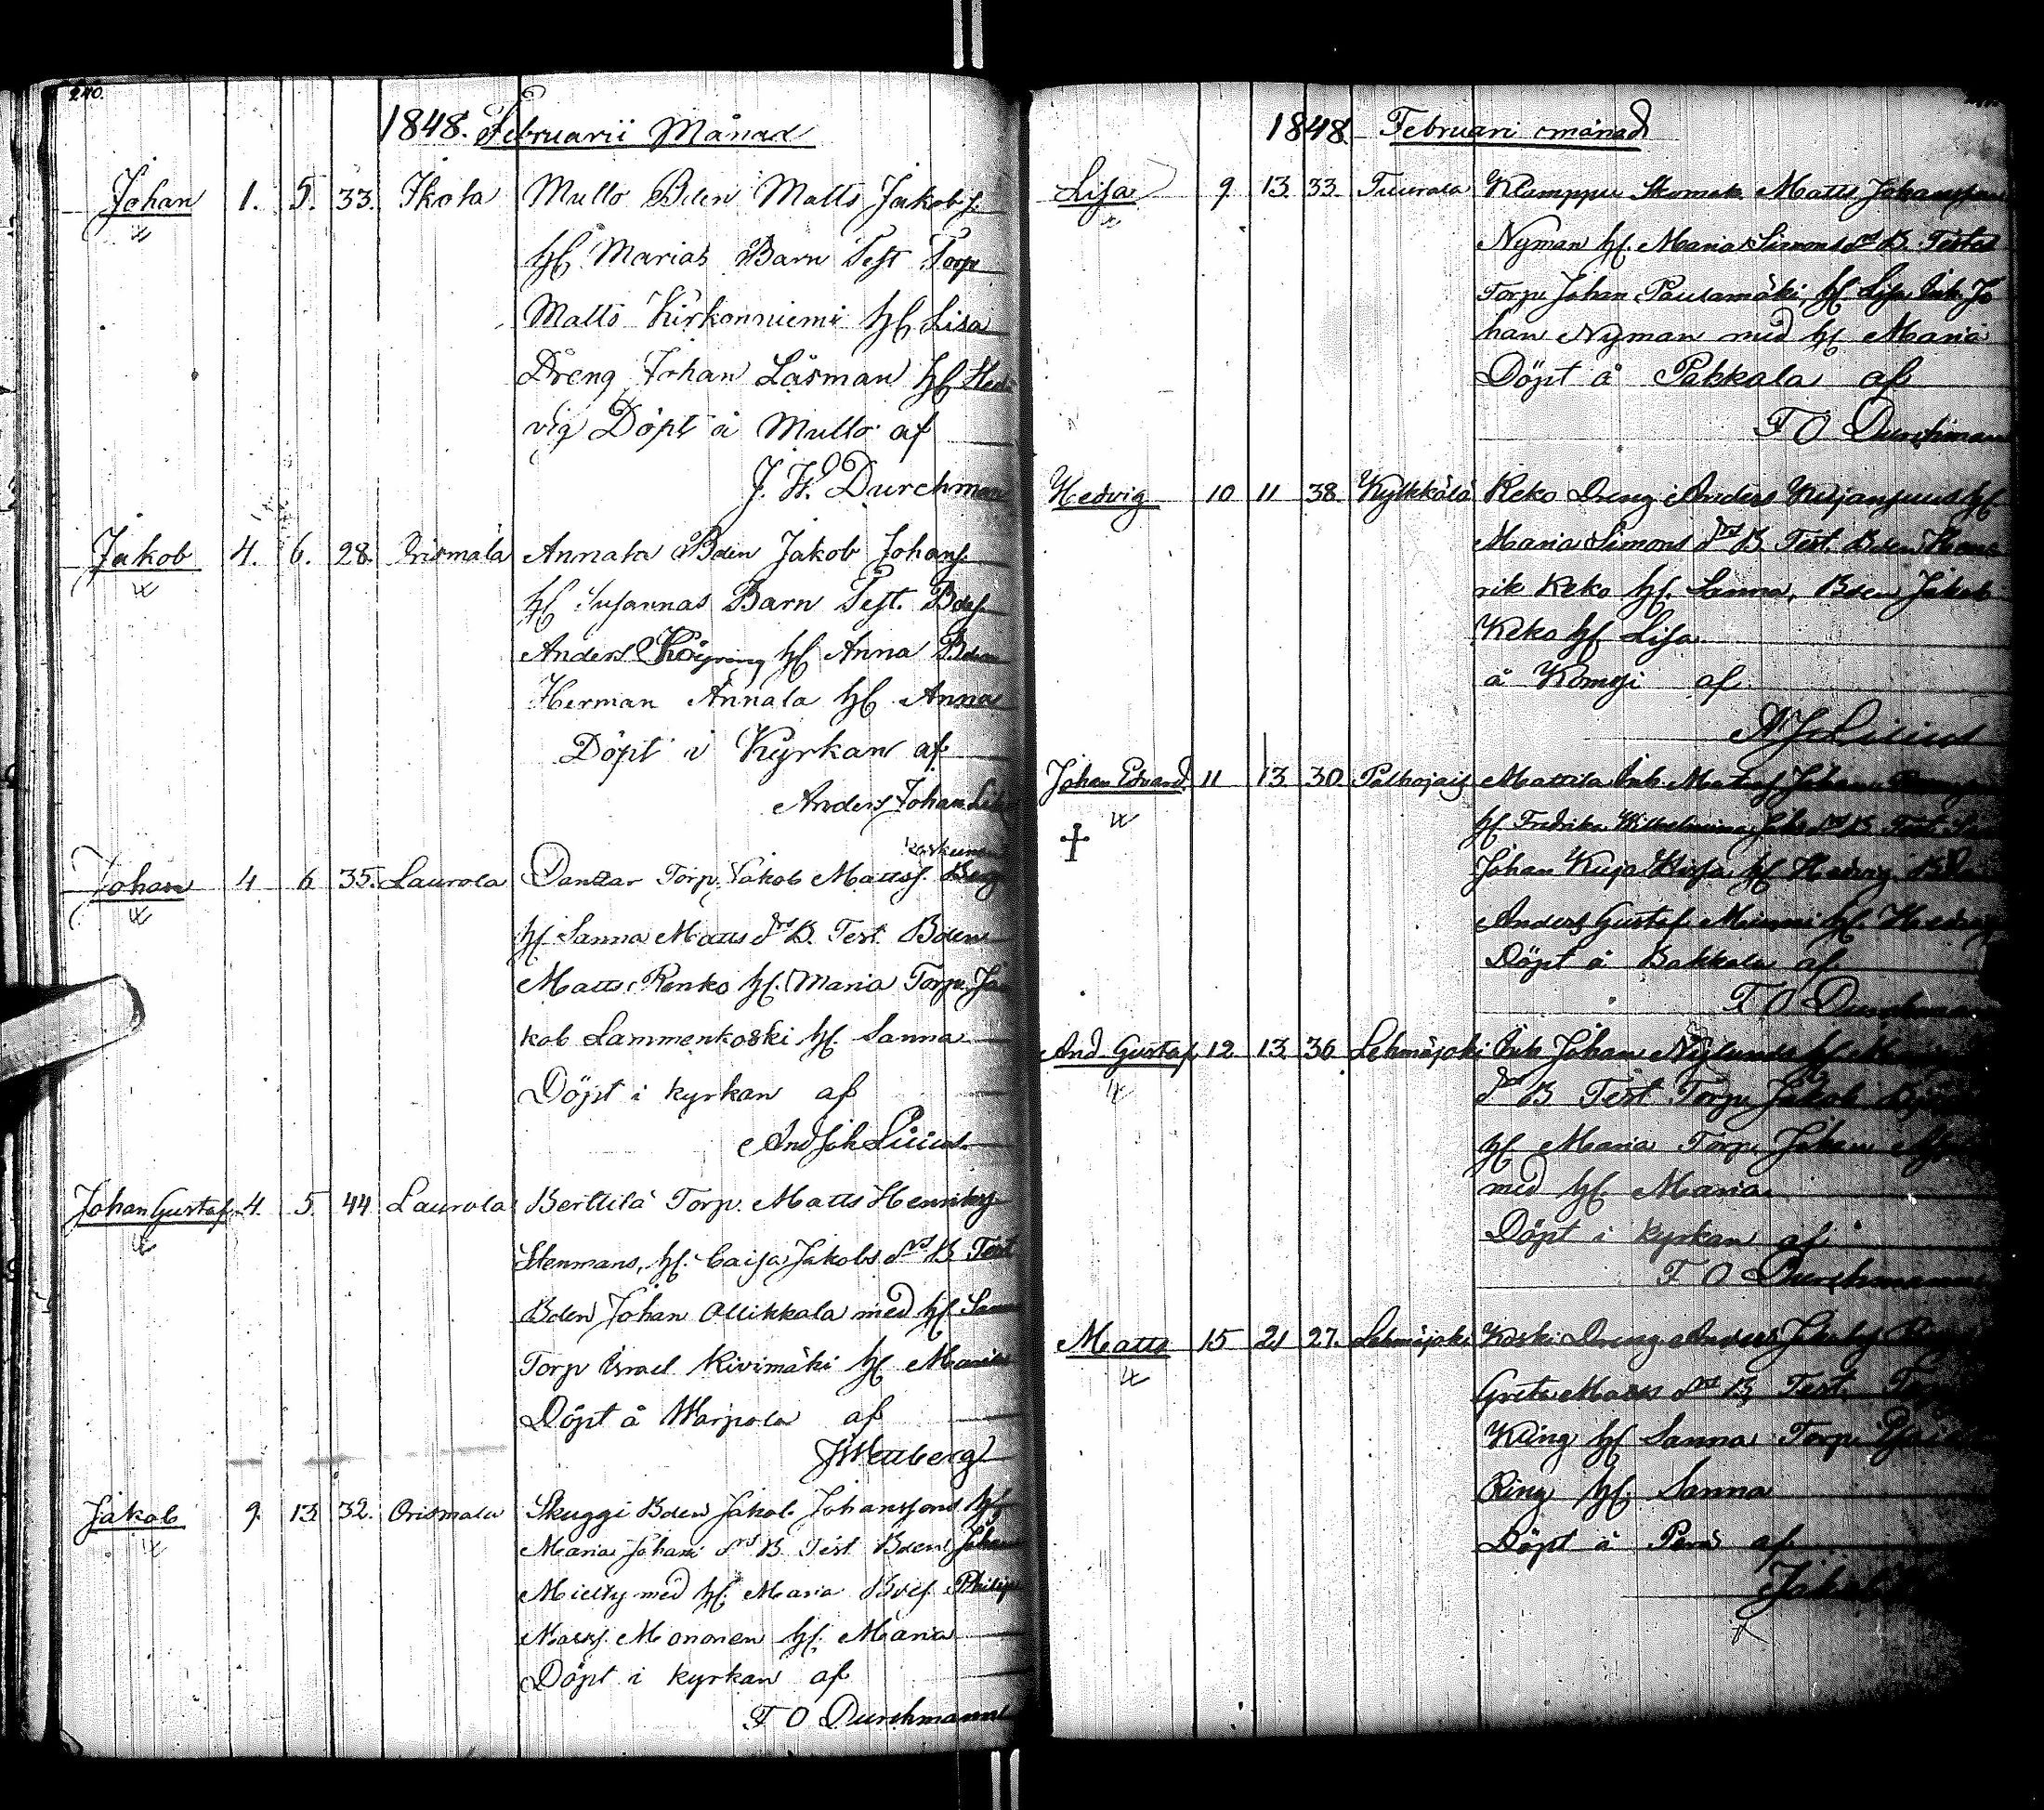 240.
1848. Februarii Månad
Johan 1. 5. 33. Ikola Mullo Bden Matts Jakobs.
hf Marias Barn Test Torp
Matts Kirkonniemi hf Lisa
Dreng Johan Läsman hf Hed
vig Döpt å Mullo af
J. W. Durchman
Jakob 4. 6. 28. Orismala Annala Bden Jakob Johans.
hf Susannas Barn Test. Bdes.
Anders hf Anna Bden
Herman Annala hf Anna
Döpt i Kyrkan af
Anders Johan
Johan 4 6 35. Laurola Torp. Jakob Mattss.
hf Sanna Matts drs B. Test. Bden
Matts Renko hf. Maria Torp. Ja
kob Lammenkoski hf. Sanna
Döpt i kyrkan af
And Joh Lilius
Johan Gustaf 4. 5. 44 Laurola Berttilä Torp. Matts Henriks
Stenmans, hf. Caisa Jakobs drs B Test
Bden Johan Ollikkala med hf. Sanna
Torp Israel Kivimäki hf Maria
Döpt å Warpola af
Jakob 9. 13 32. Orismala Skuggi Bden Jakob Johanssons hf
Maria Johans drs B. Test Bden Johan
med hf. Maria Bdes. Philip
Mononen hf. Maria
Döpt i kyrkan af
F O Durchmann
1848. Februari månad
Lisa 9 13 33. Tuurala Klamppu Skomak. Matts Johansson
Nyman hf. Maria Simons drs B. Testes
Torp. Johan Pausamäki, hf Lisa Inh. Jo
han Nyman med hf Maria
Döpt å Pakkala af
F O Durchman
Hedvig 10 11 38. Kylkkälä Keko Dreng Anders hf
Maria Simons drs B. Test. Bden Hen
rik Keko hf. Sanna, Bden Jakob
Keko hf Lisa
å af
A J Lilius
Johan Edvard 11 13 30. Palhojais Mattila Inh. Johan
hf Fredrika Wilhelmina drs B. Test.
Johan hf Hedvig
Anders Gustaf hf. Hedvig
Döpt å Bakkala af
F O Durchman
And. Gustaf 12 13 36 Lehmäjoki Inh Johan Nylunds hf
drs B Test Torp Jakob
hf Maria Torp. Johan
med hf. Maria
Döpt i kyrkan af
F O Durchman
Matts 15 21 27. Lehmäjoki Koski Dreng Anders
Greta drs B Test.
hf Sanna Torp.
Ring hf. Sanna
Döpt å af
Jakob